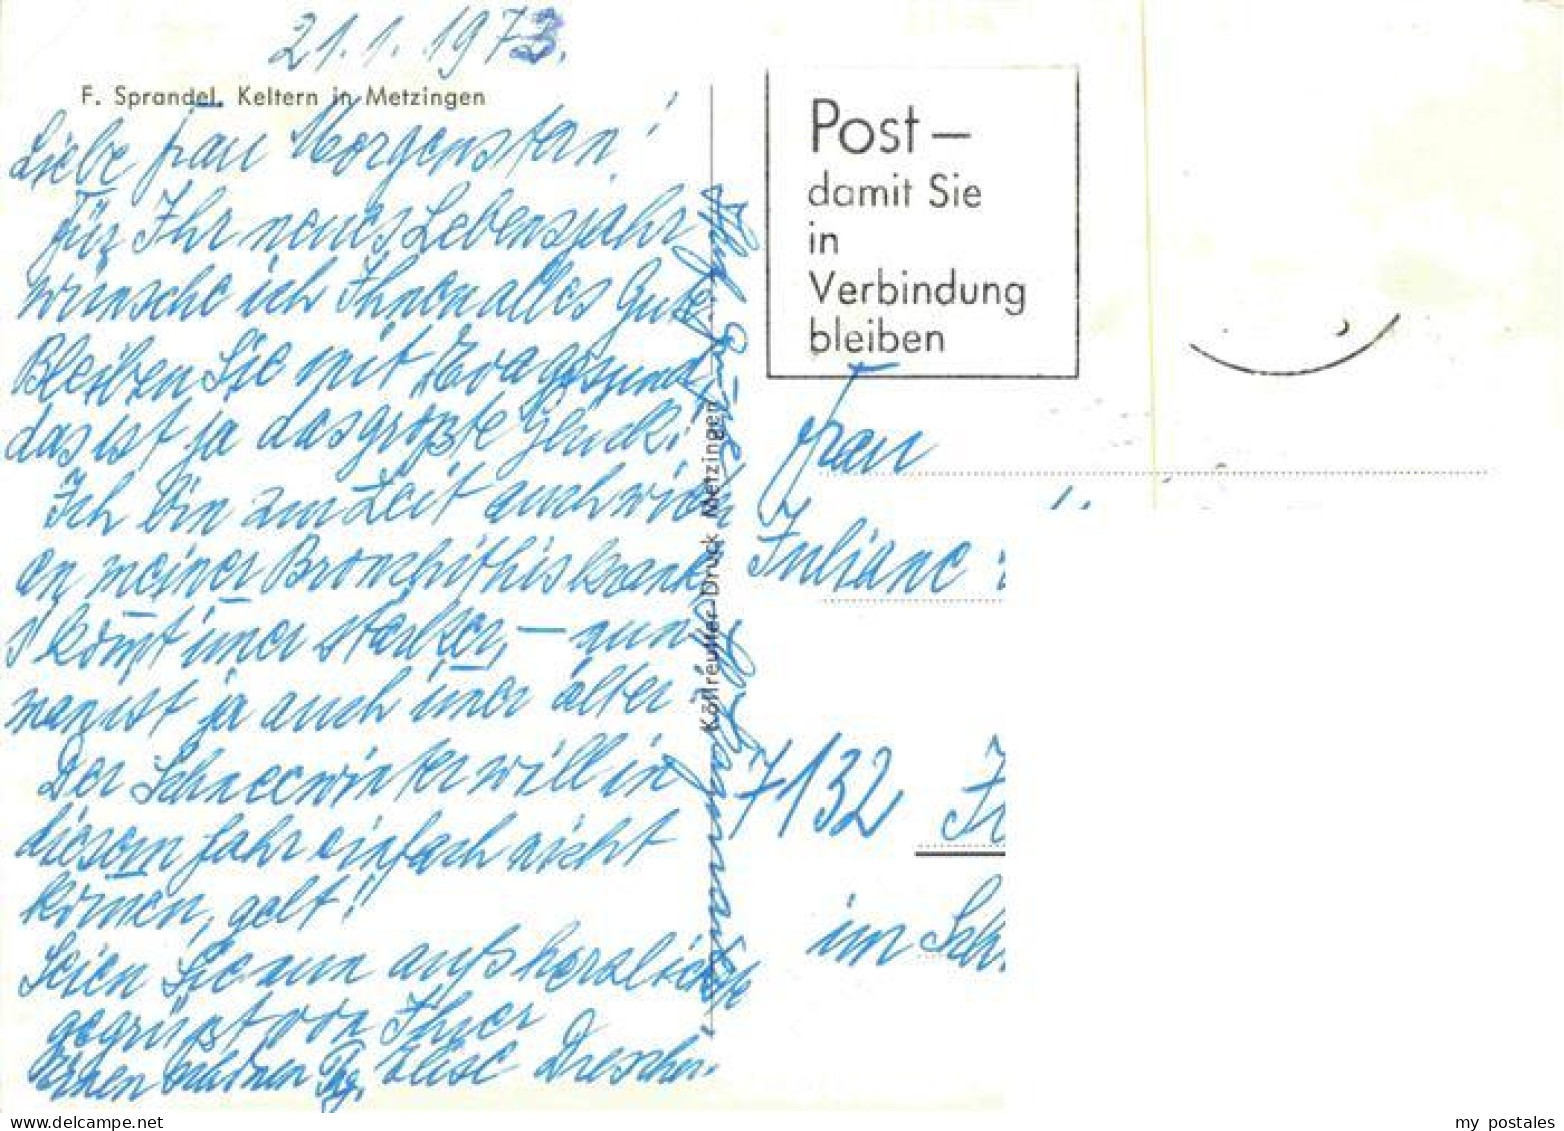 21.1.1973.
F. Sprandel, Keltern in Metzingen
Liebe Frau Morgenstern!
Für Ihr neues Lebensjahr
wünsche ich Ihnen alles Gute
Bleiben Sie mit Eva gesund,
das ist ja das größte Glück.
Ich bin zur Zeit auch wieder
an meiner Bronchithis krank
's kom̄t im̄er stärker, — nun
man ist ja auch im̄er älter
Der Schneewinter will in
diesem Jahr einfach nicht
kom̄en, gelt!
Seien Sie nun aufs herzlichste
gegrüßt von Ihrer
Elise Drescher.
Köllreutter-Druck Metzingen
Post —
damit Sie
in
Verbindung
bleiben
Frau
Juliane
7132
im
delcampe.net
my_postales